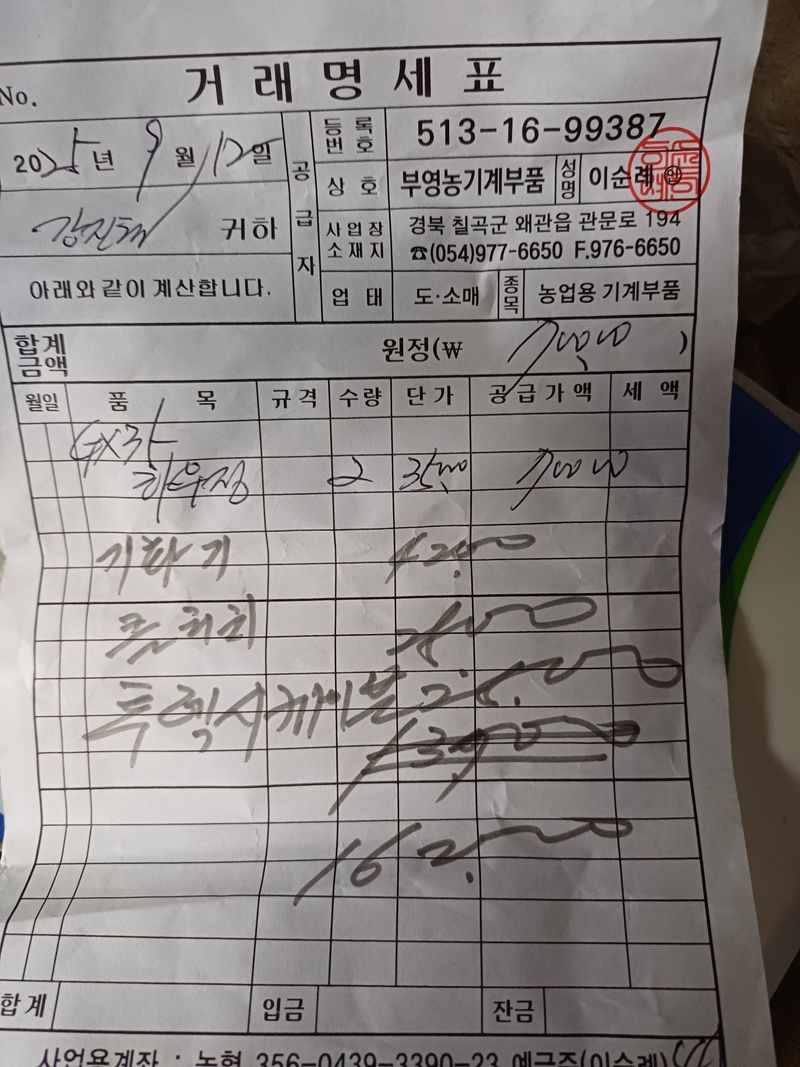 No. 거래명세표
2025년 9월 12일
강진태 귀하
아래와 같이 계산합니다.
공급자
등록번호 513-16-99387
상호 부영농기계부품 성명 이순례 ㊞
사업장소재지 경북 칠곡군 왜관읍 관문로 194
☎(054)977-6650 F.976-6650
업태 도·소매 종목 농업용 기계부품
합계금액 원정(₩ 70000 )
월일 품목 규격 수량 단가 공급가액 세액
GX35
하우징 2 35,000 70000
기화기 42,000
클러치
25,000
162,000
합계 입금 잔금
사업용계좌 : 농협 356-0439-3390-23 예금주(이순례)